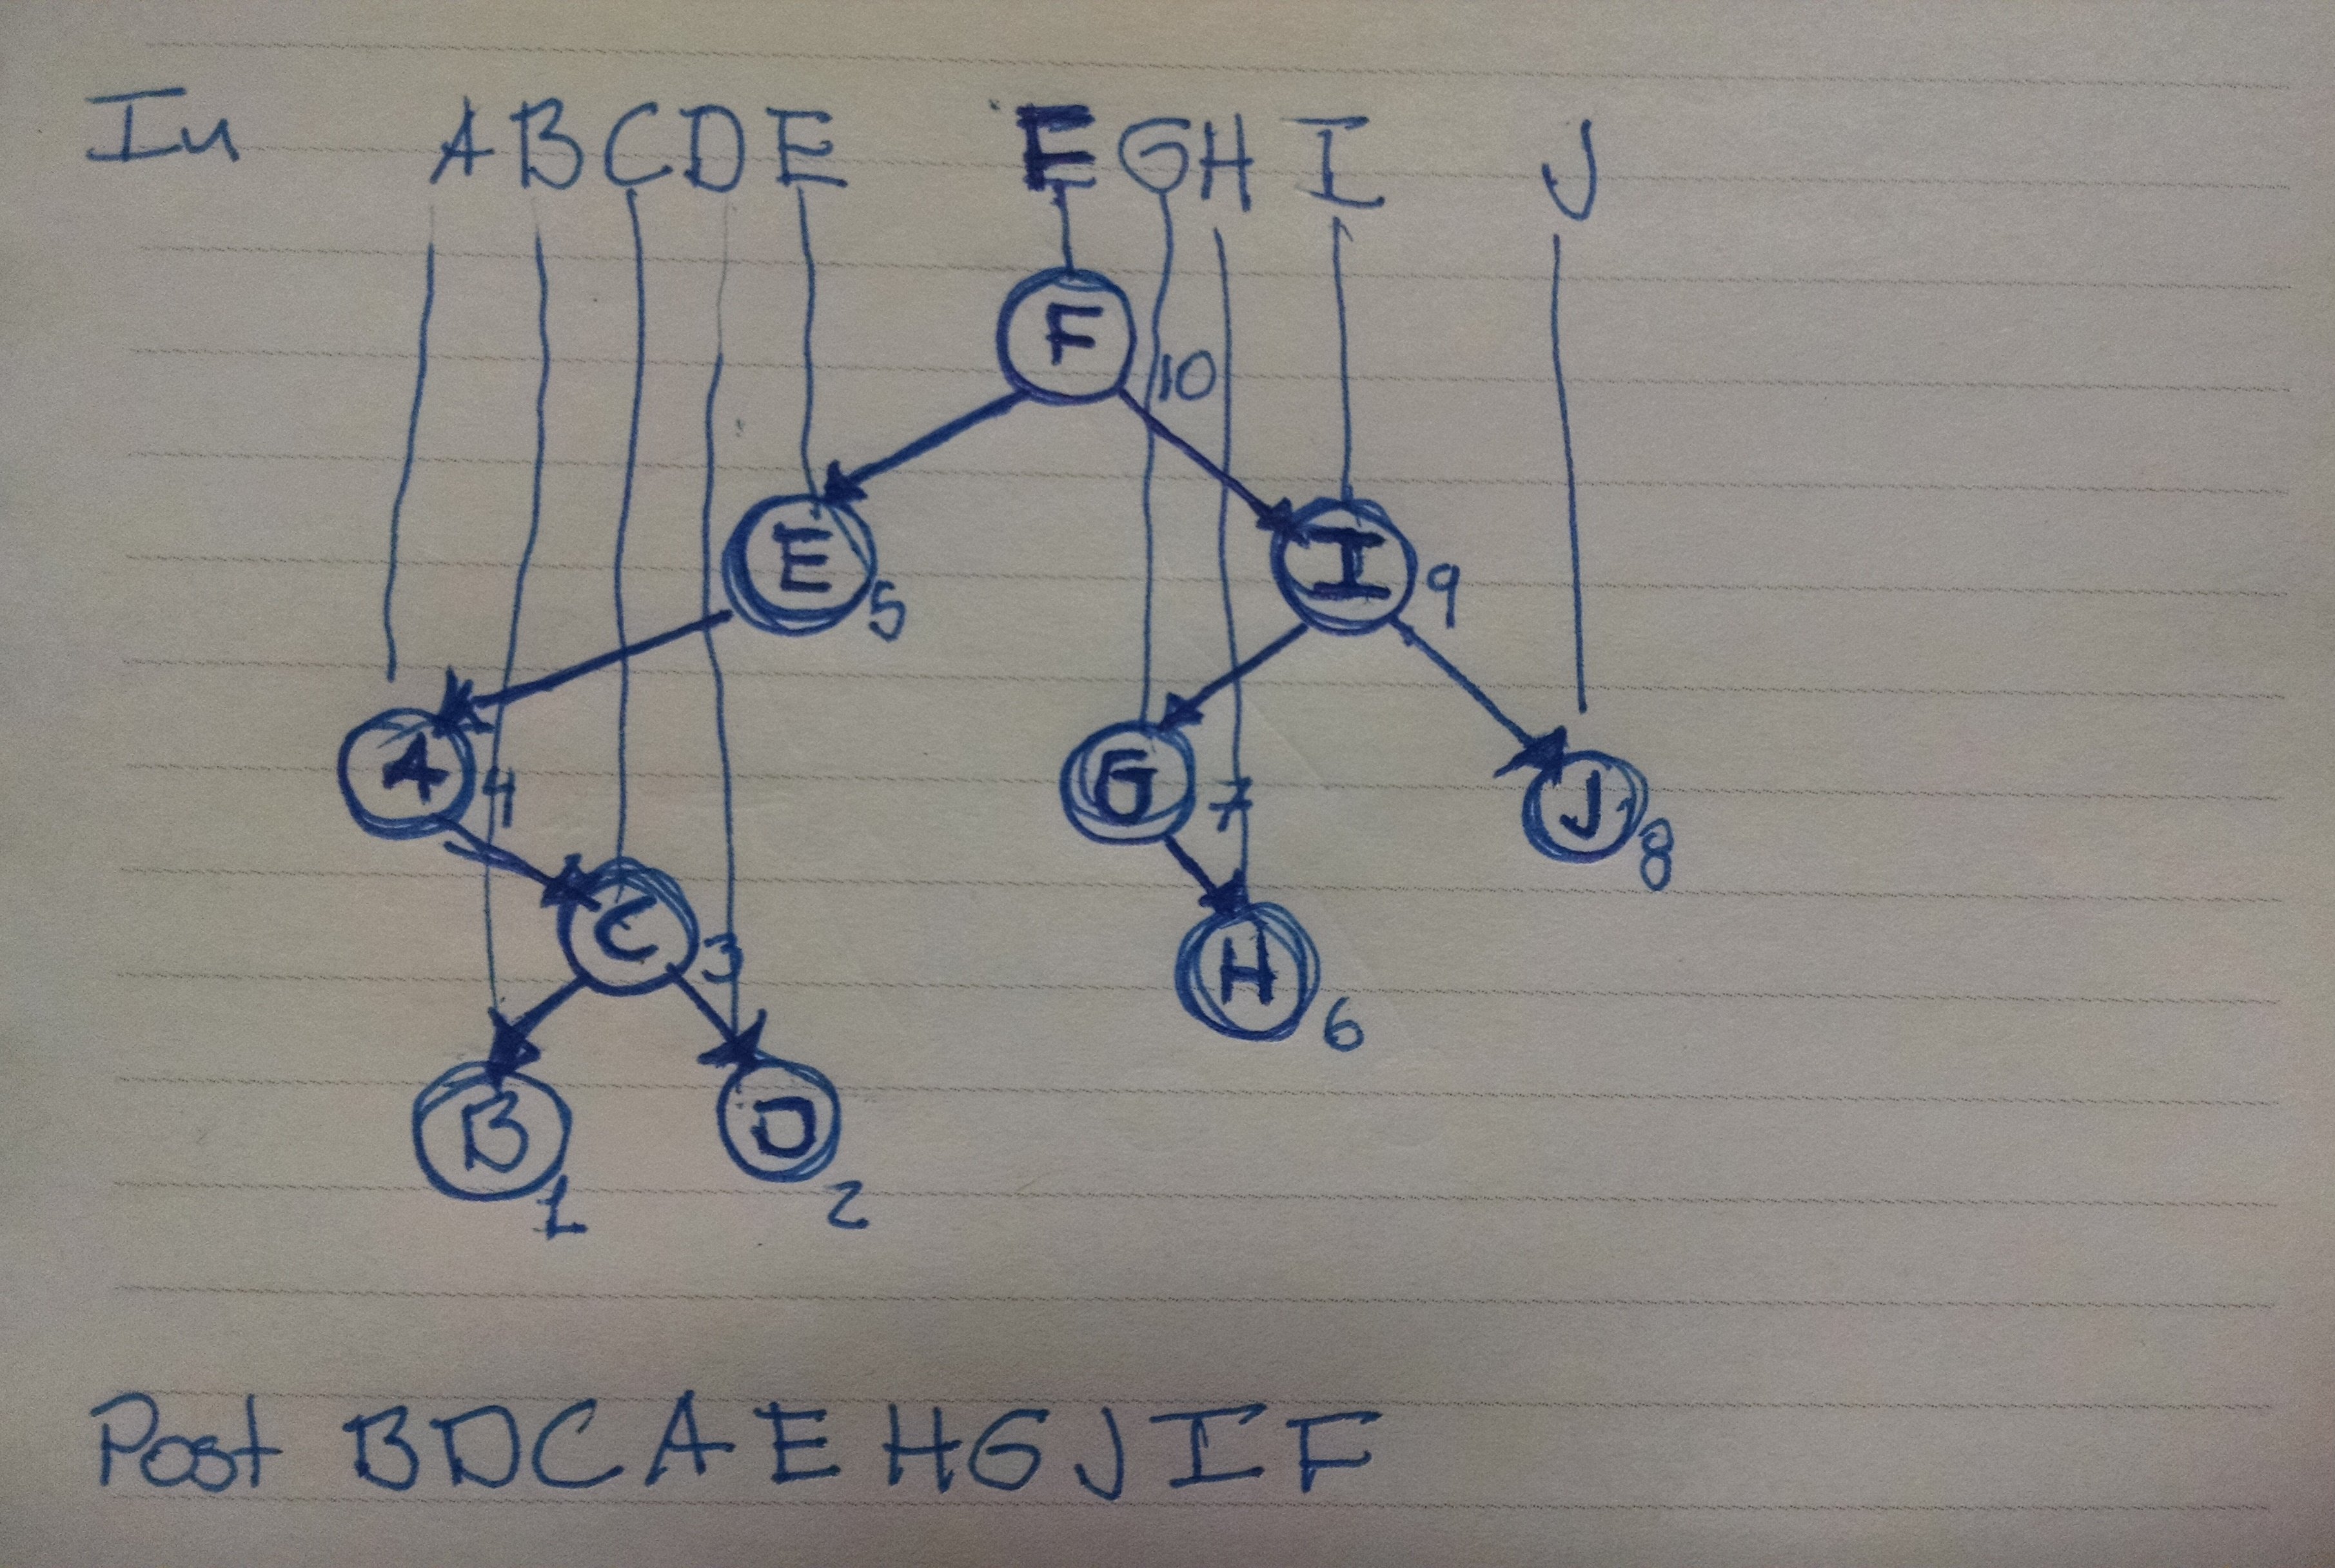 In A B C D E F G H I J
F
10
E 5 I 9
A 4 G 7 J 8
C 3 H 6
B 1 D 2
Post B D C A E H G J I F